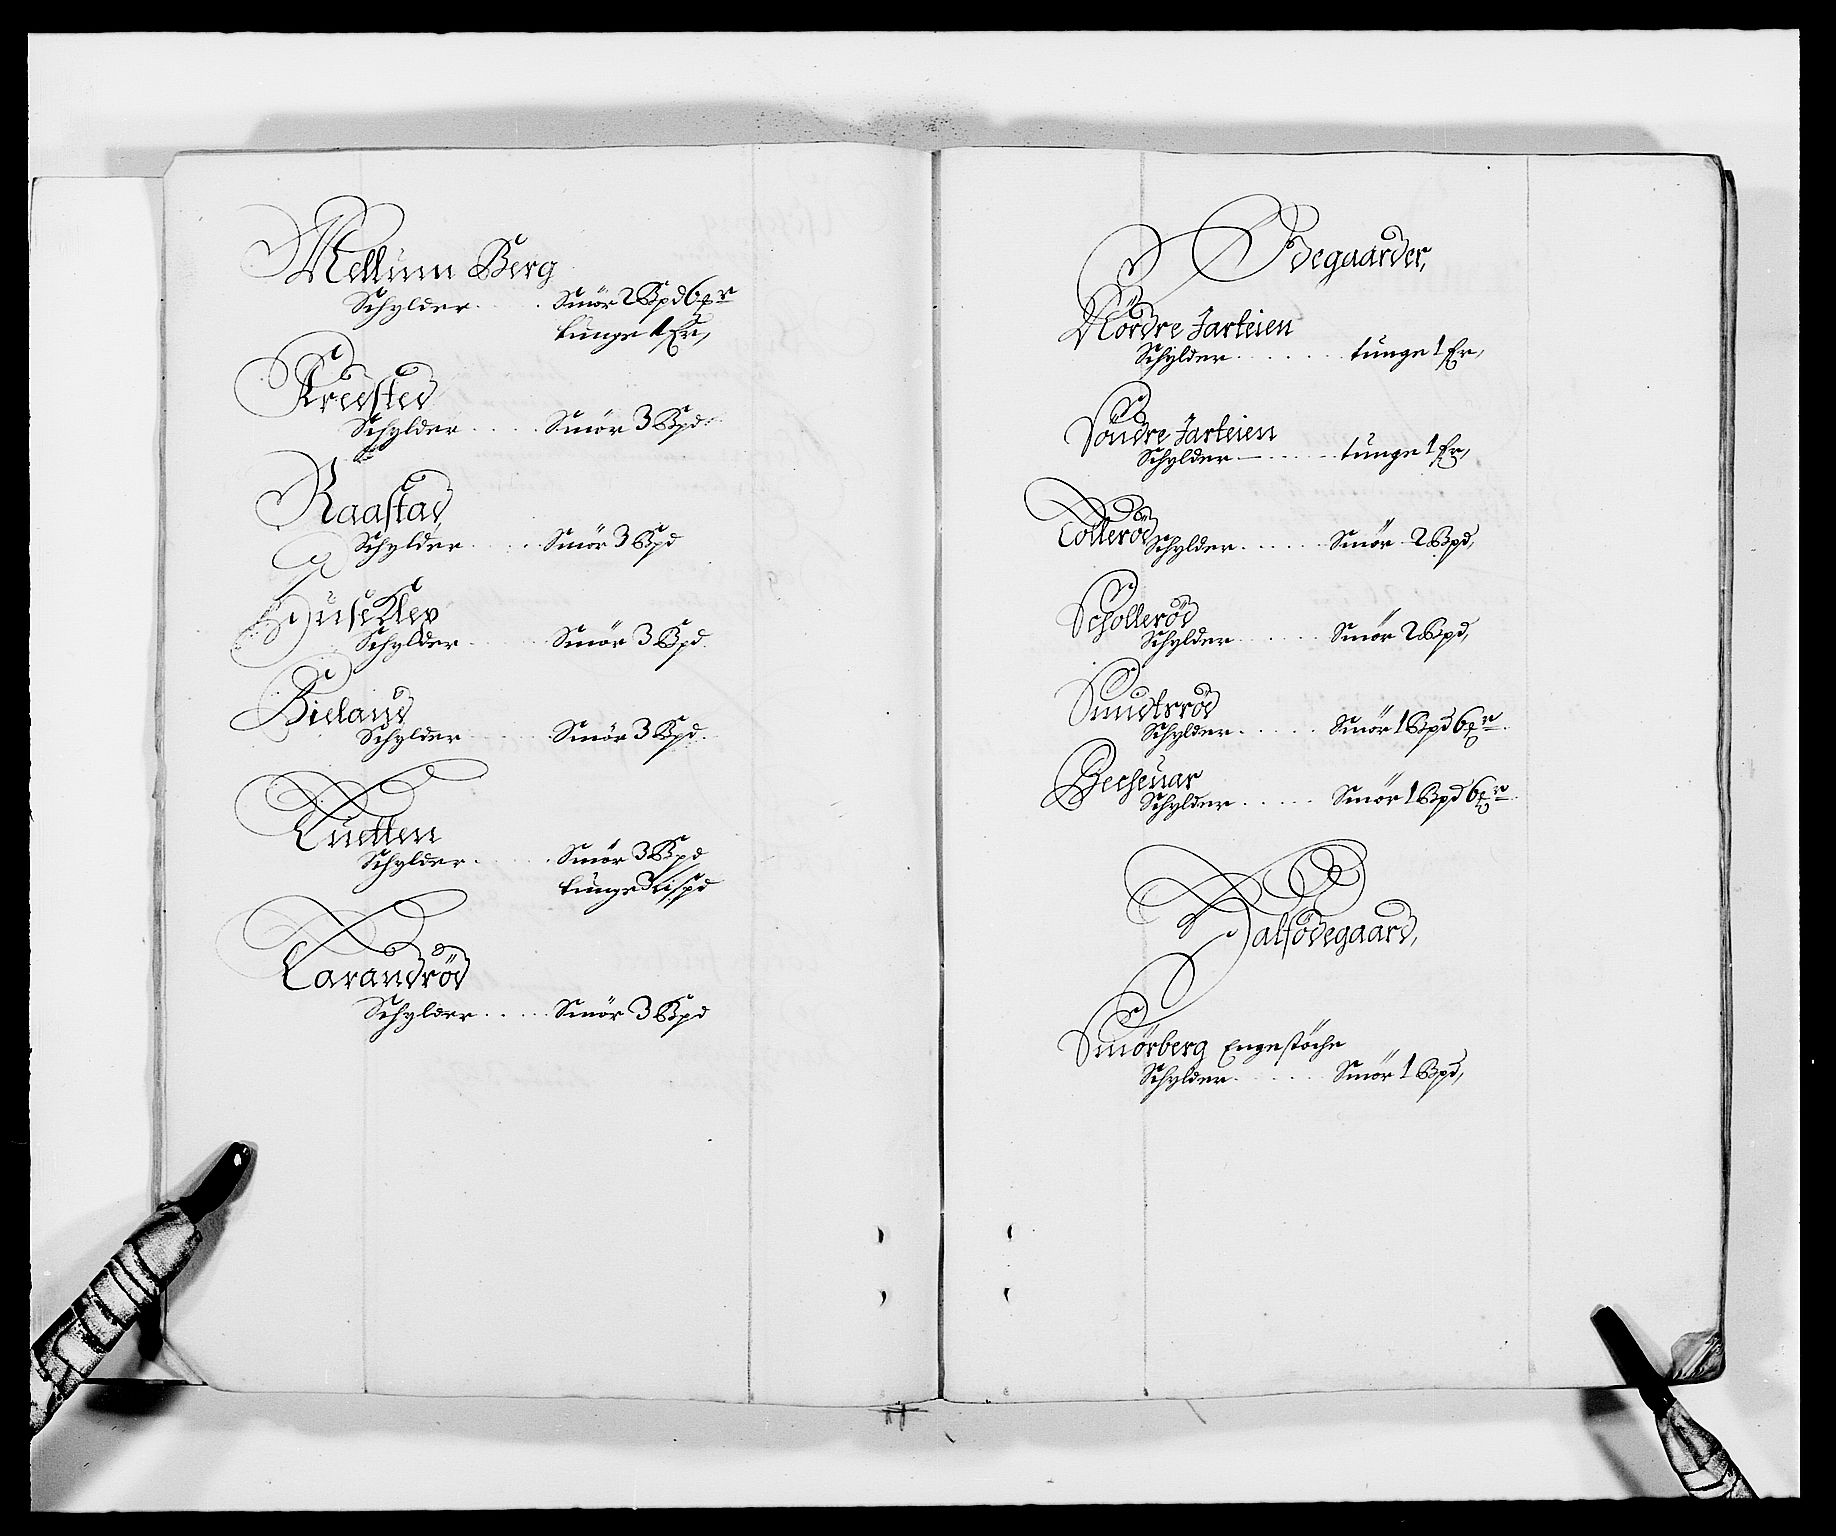 Mellum Berg
Schylder . . . . . Smör 2 Bpd 6 mr
tunge 1 Er,
Kredsted
Schylder . . . . . Smör 3 Bpd
Raastad
Schylder . . . . . Smör 3 Bpd
Huseklep
Schylder . . . . . Smör 3 Bpd.
Bieland
Schylder . . . . . Smör 3 Bpd.
Luetten
Schylder . . . . . Smör 3 Bpd
tunge 3 lispd
Larandröd
Schylder . . . . . Smör 3 Bpd
Ödegaarder,
Nordre Jarteien
Schylder . . . . . . tunge 1 Er,
Söndre Jarteien
Schylder . . . . . . tunge 1 Er,
Tolleröd
Schylder . . . . . Smör 2 Bpd,
Scholleröd
Schylder . . . . . Smör 2 Bpd,
Smidtsröd
Schylder . . . . . Smör 1 Bpd 6 mr.
Becheuar
Schylder . . . . . Smör 1 Bpd 6 mr.
Halfödegaard,
Smörberg Engestöche
Schylder . . . . . Smör 1 Bpd,